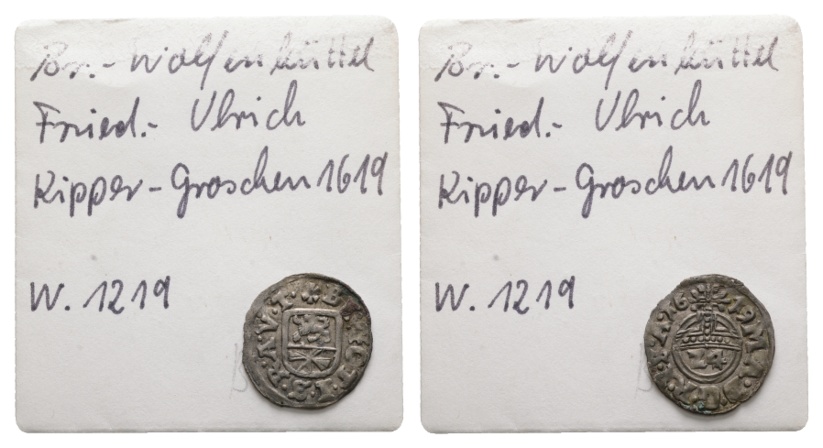 Br.-Wolfenbüttel
Fried.- Ulrich
Kipper-Groschen 1619
W. 1219
Br.-Wolfenbüttel
Fried.- Ulrich
Kipper-Groschen 1619
W. 1219